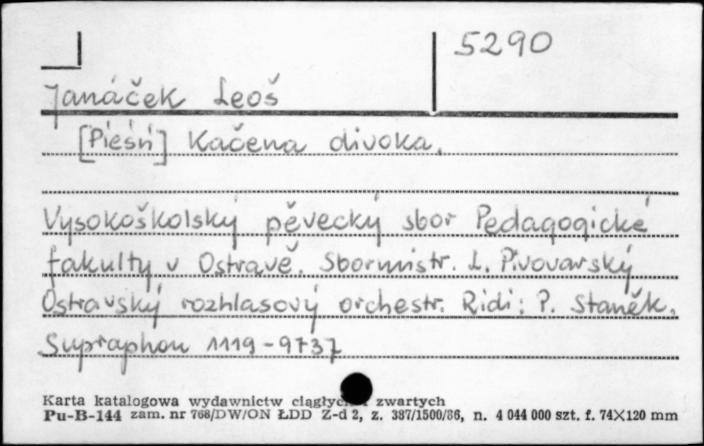 5290
Janáček Leoš
[Pieśń] Kačena divoka.
Vysokoškolský pěvecký sbor Pedagogické
fakulty v Ostravě. Sbormistr. L. Pivovarský
Ostravský rozhlasový orchestr. Ridi: P. Staněk.
Supraphon 1119-9737
Karta katalogowa wydawnictw ciągłych zwartych
Pu-B-144 zam. nr 768/DW/ON ŁDD Z-d 2, z. 387/1500/86, n. 4 044 000 szt. f. 74X120 mm